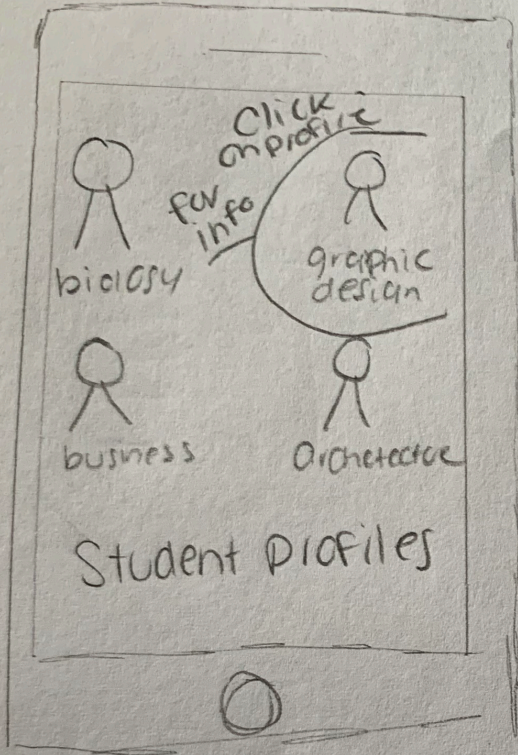 Click
on profile
for
info
biology
graphic
design
business
Archetectoe
Student Profiles